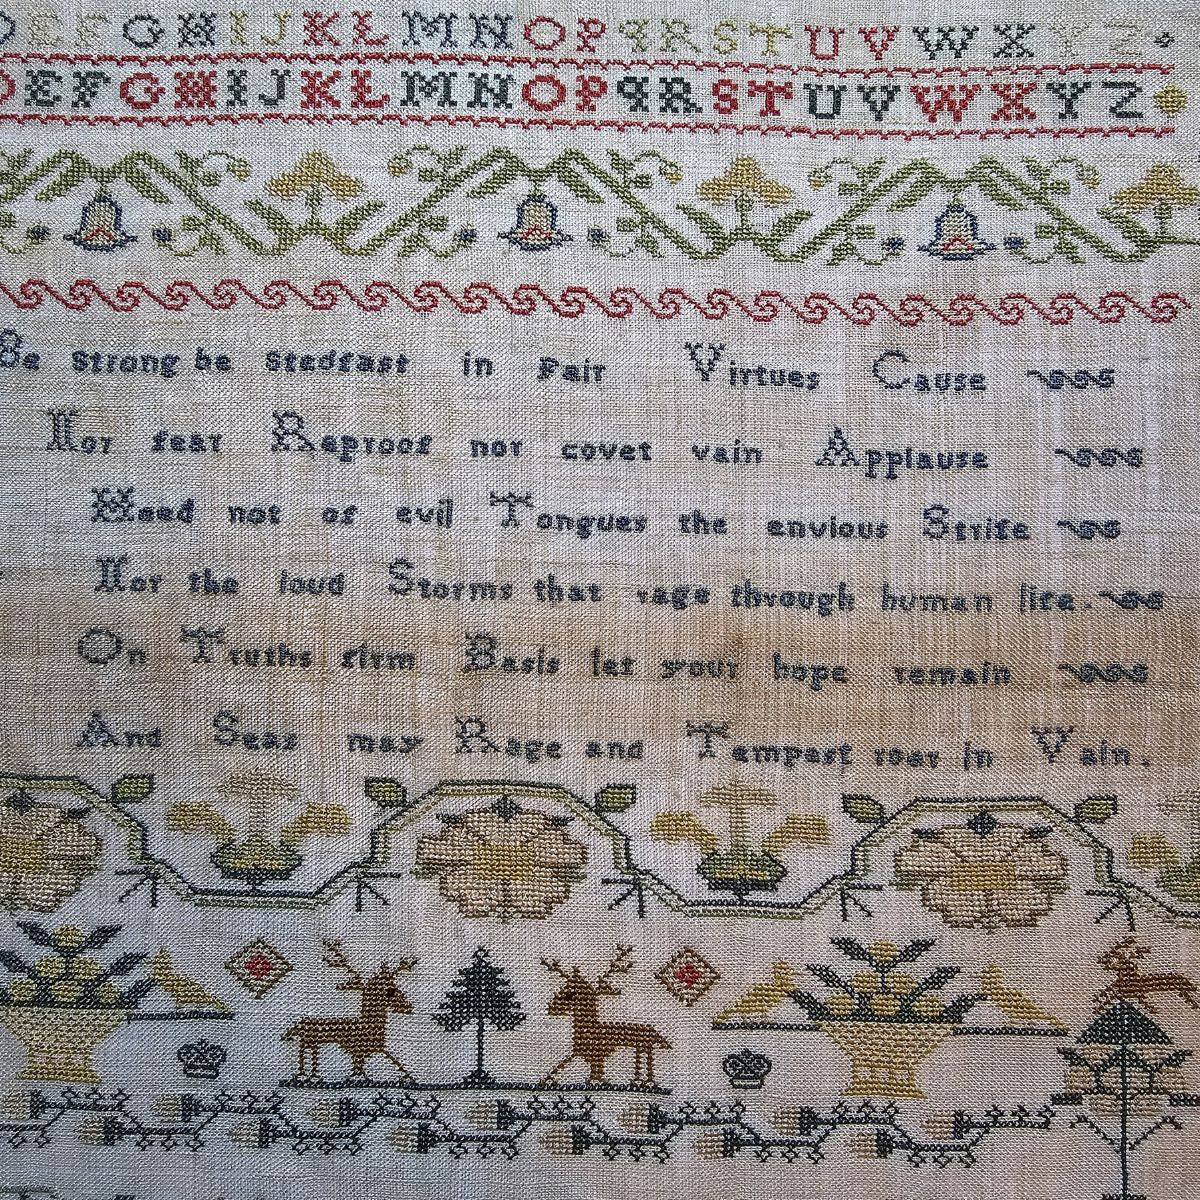 E F G H I J K L M N O P q R S T U V W X Y Z
D E F G H I J K L M N O P q R S T U V W X Y Z
Be Strong be Stedfast in Fair Virtues Cause
Nor fear Reproof nor covet vain Applause
Heed not of evil Tongues the envious Strife
Nor the loud Storms that rage through human life.
On Truths firm Basis let your hope remain
And Seas may Rage and Tempest roar in Vain.